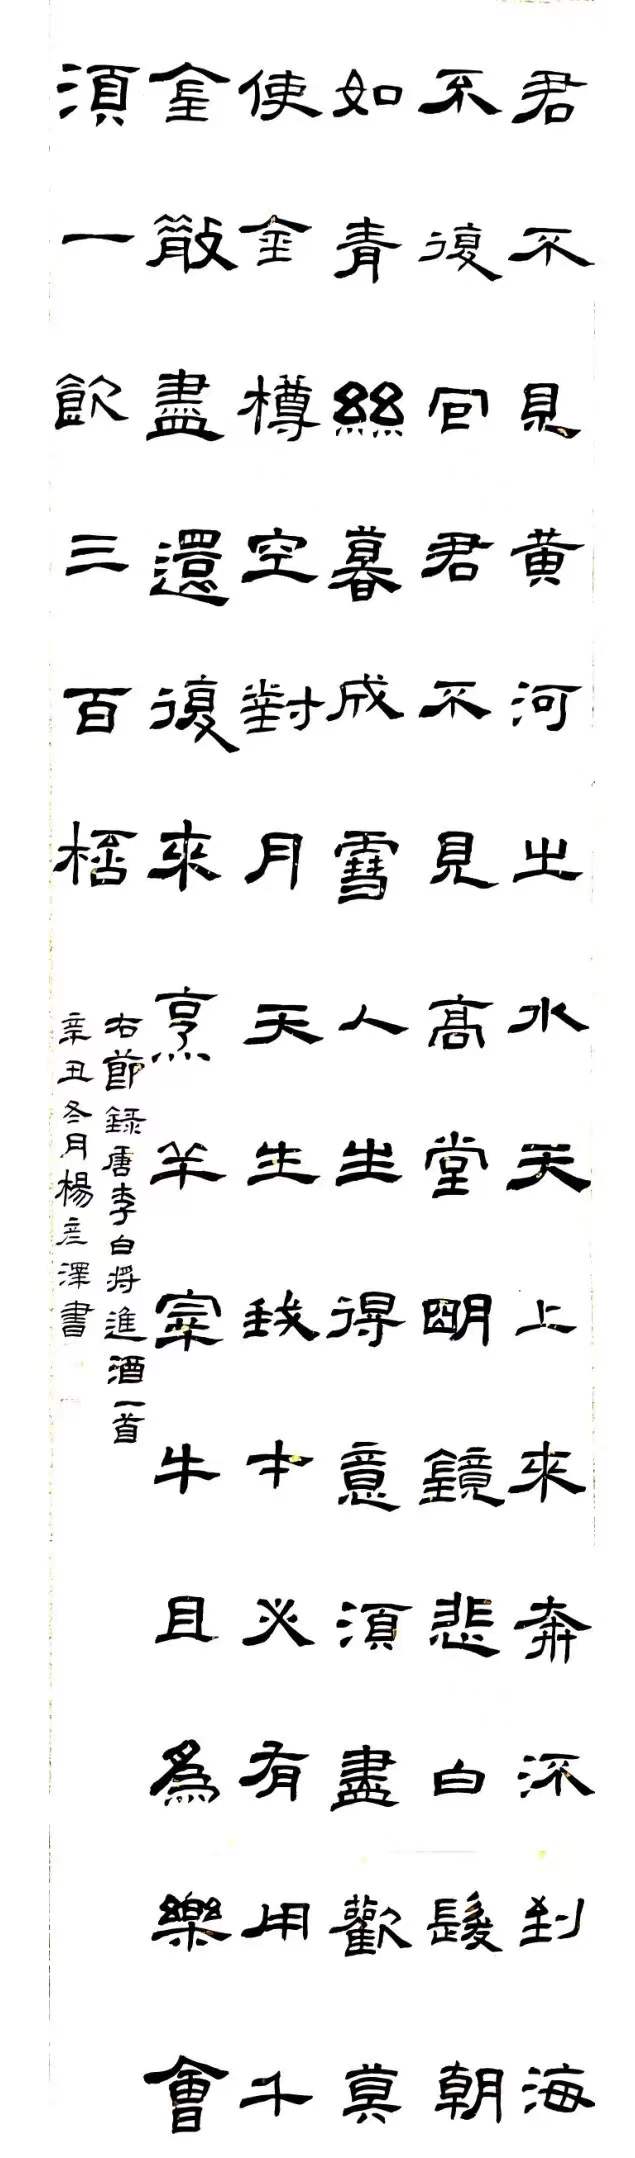 君不見黄河之水天上來奔流到海
不復回君不見高堂明鏡悲白髮朝
如青絲暮成雪人生得意須盡歡莫
使金樽空對月天生我才必有用千
金散盡還復來烹羊宰牛且為樂會
須一飲三百桮
右節録唐李白将進酒一首
辛丑冬月楊彦澤書